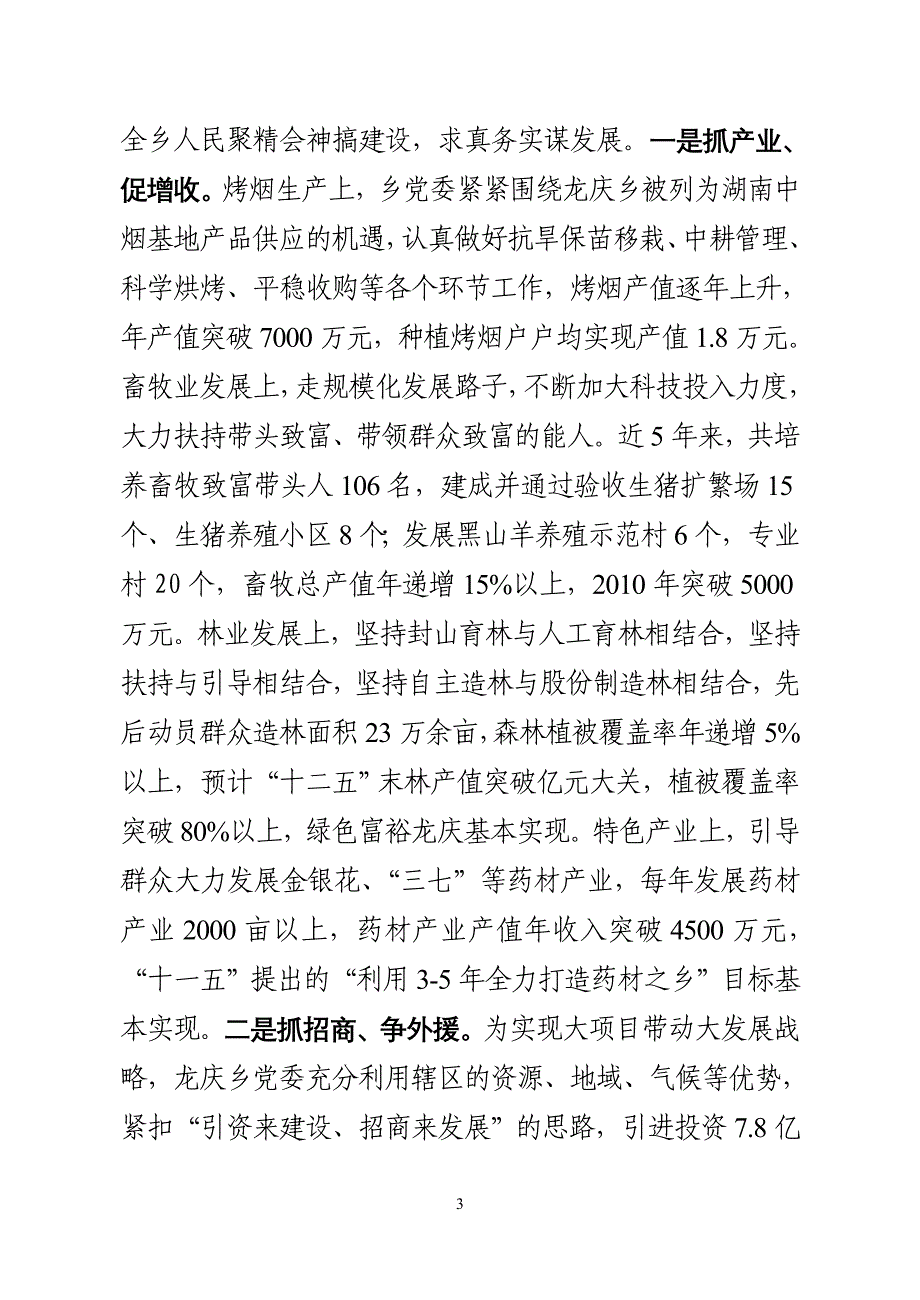 全乡人民聚精会神搞建设，求真务实谋发展。一是抓产业、
促增收。烤烟生产上，乡党委紧紧围绕龙庆乡被列为湖南中
烟基地产品供应的机遇，认真做好抗旱保苗移栽、中耕管理、
科学烘烤、平稳收购等各个环节工作，烤烟产值逐年上升，
年产值突破 7000 万元，种植烤烟户户均实现产值 1.8 万元。
畜牧业发展上，走规模化发展路子，不断加大科技投入力度，
大力扶持带头致富、带领群众致富的能人。近 5 年来，共培
养畜牧致富带头人 106 名，建成并通过验收生猪扩繁场 15
个、生猪养殖小区 8 个；发展黑山羊养殖示范村 6 个，专业
村 20 个，畜牧总产值年递增 15%以上，2010 年突破 5000
万元。林业发展上，坚持封山育林与人工育林相结合，坚持
扶持与引导相结合，坚持自主造林与股份制造林相结合，先
后动员群众造林面积 23 万余亩，森林植被覆盖率年递增 5%
以上，预计“十二五”末林产值突破亿元大关，植被覆盖率
突破 80%以上，绿色富裕龙庆基本实现。特色产业上，引导
群众大力发展金银花、“三七”等药材产业，每年发展药材
产业 2000 亩以上，药材产业产值年收入突破 4500 万元，
“十一五”提出的“利用 3-5 年全力打造药材之乡”目标基
本实现。二是抓招商、争外援。为实现大项目带动大发展战
略，龙庆乡党委充分利用辖区的资源、地域、气候等优势，
紧扣“引资来建设、招商来发展”的思路，引进投资 7.8 亿
3